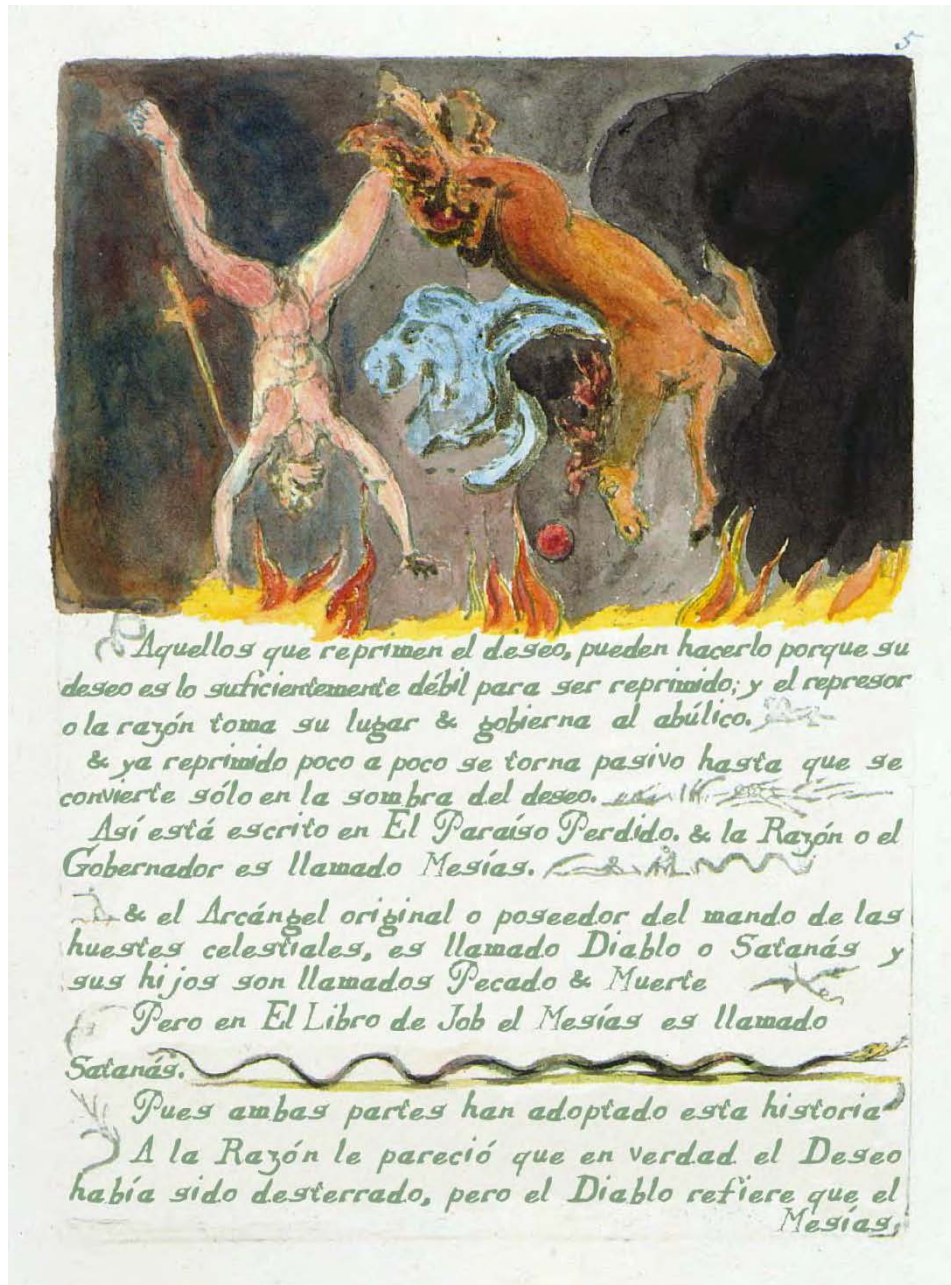 5
Aquellos que reprimen el deseo, pueden hacerlo porque su
deseo es lo suficientemente débil para ser reprimido; y el represor
o la razón toma su lugar & gobierna al abúlico.
& ya reprimido poco a poco se torna pasivo hasta que se
convierte sólo en la sombra del deseo.
Así está escrito en El Paraíso Perdido. & la Razón o el
Gobernador es llamado Mesías.
& el Arcángel original o poseedor del mando de las
huestes celestiales, es llamado Diablo o Satanás y
sus hijos son llamados Pecado & Muerte
Pero en El Libro de Job el Mesías es llamado
Satanás.
Pues ambas partes han adoptado esta historia
A la Razón le pareció que en verdad el Deseo
había sido desterrado, pero el Diablo refiere que el
Mesías